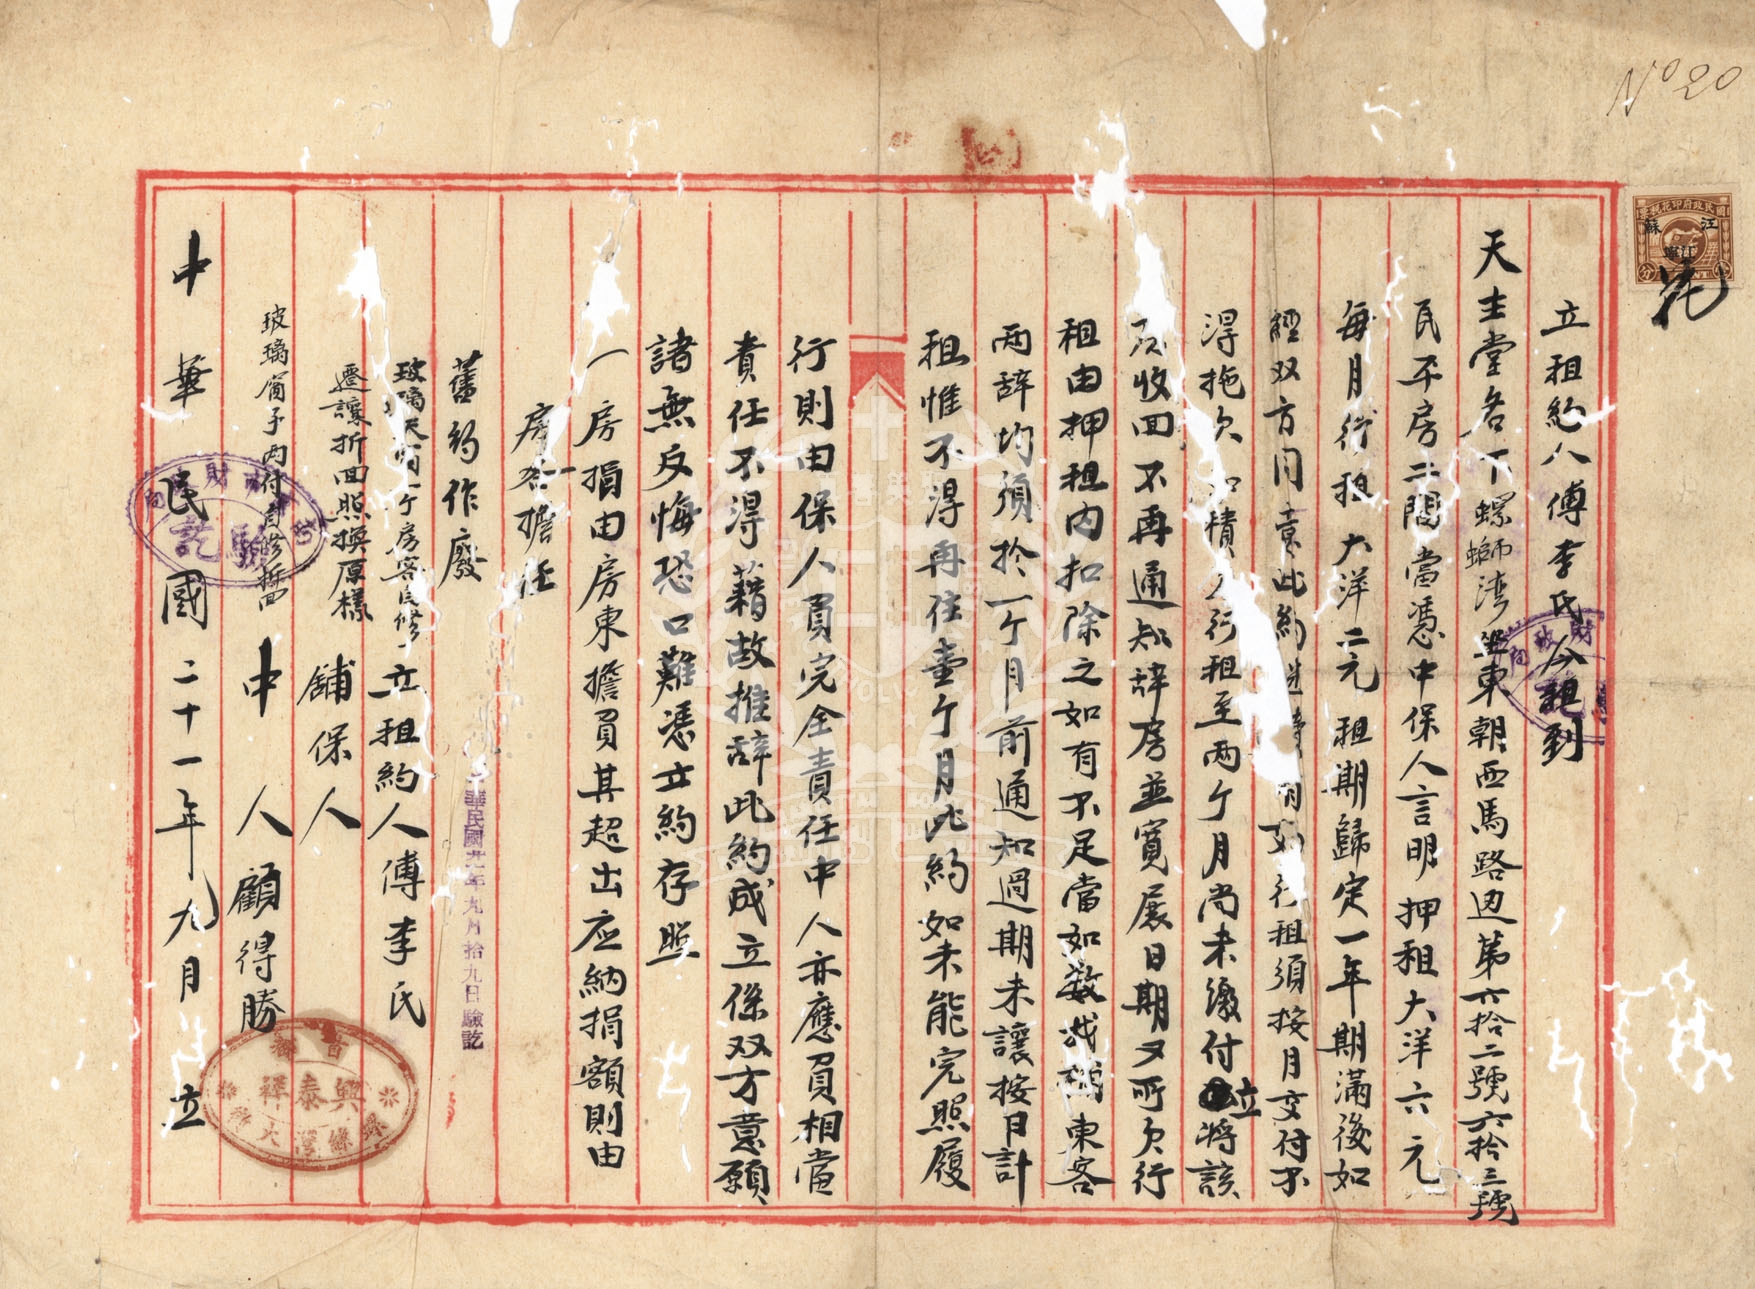 Nº 20
國民政府印花稅票
江蘇
立租約人傅李氏今租到
天主堂名下螺螄湾坐東朝西馬路边第六拾二號六拾三號
民平房二間當憑中保人言明押租大洋六元
每月行租大洋二元租期歸定一年期滿後如
經双方同意此約 如行租須按月交付不
得拖欠如積欠行租至两个月尚未繳付立將該
房收回不再通知辞房並寬展日期又所欠行
租由押租内扣除之如有不足當如数 東客
两辞均須於一个月前通知過期未讓按日計
租惟不得再住壹个月此約如未能完照履
行則由保人負完全責任中人亦應負相當
責任不得藉故推辞此約成立係双方意願
諸無反悔恐口難憑立約存照
一房捐由房東擔負其超出应納捐額則由
房客擔任
舊約作廢
玻璃天 一个房客氏修
遷讓折回照換原樣
玻璃窗子两付自修拆回
立租約人傅李氏
舖保人
中人顧得勝
中華民國二十一年九月 立
華民國廿一年九月拾九日驗訖
驗訖
財政局
興泰祥